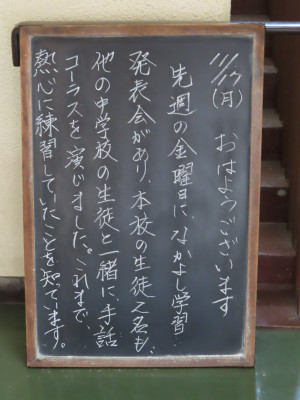 11/17(月) おはようございます
先週の金曜日に、なかよし学習
発表会があり、本校の生徒2名も、
他の中学校の生徒と一緒に、手話
コーラスを演じました。これまで、
熱心に練習していたことを知っています。